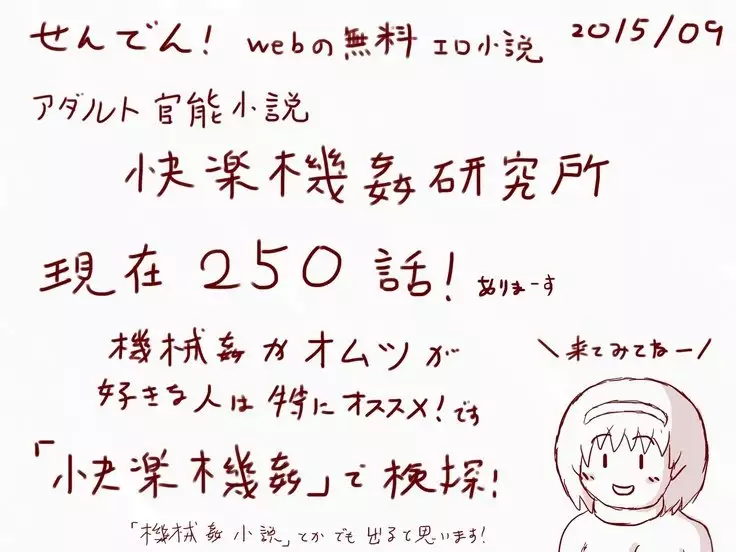 せんでん! webの無料 エロ小説 2015/09
アダルト官能小説
快楽機姦研究所
現在250話! ありまーす
機械姦かオムツが
好きな人は特にオススメ!です
\来てみてねー/
「快楽機姦」で検探!
「機械姦小説」とかでも出ると思います!